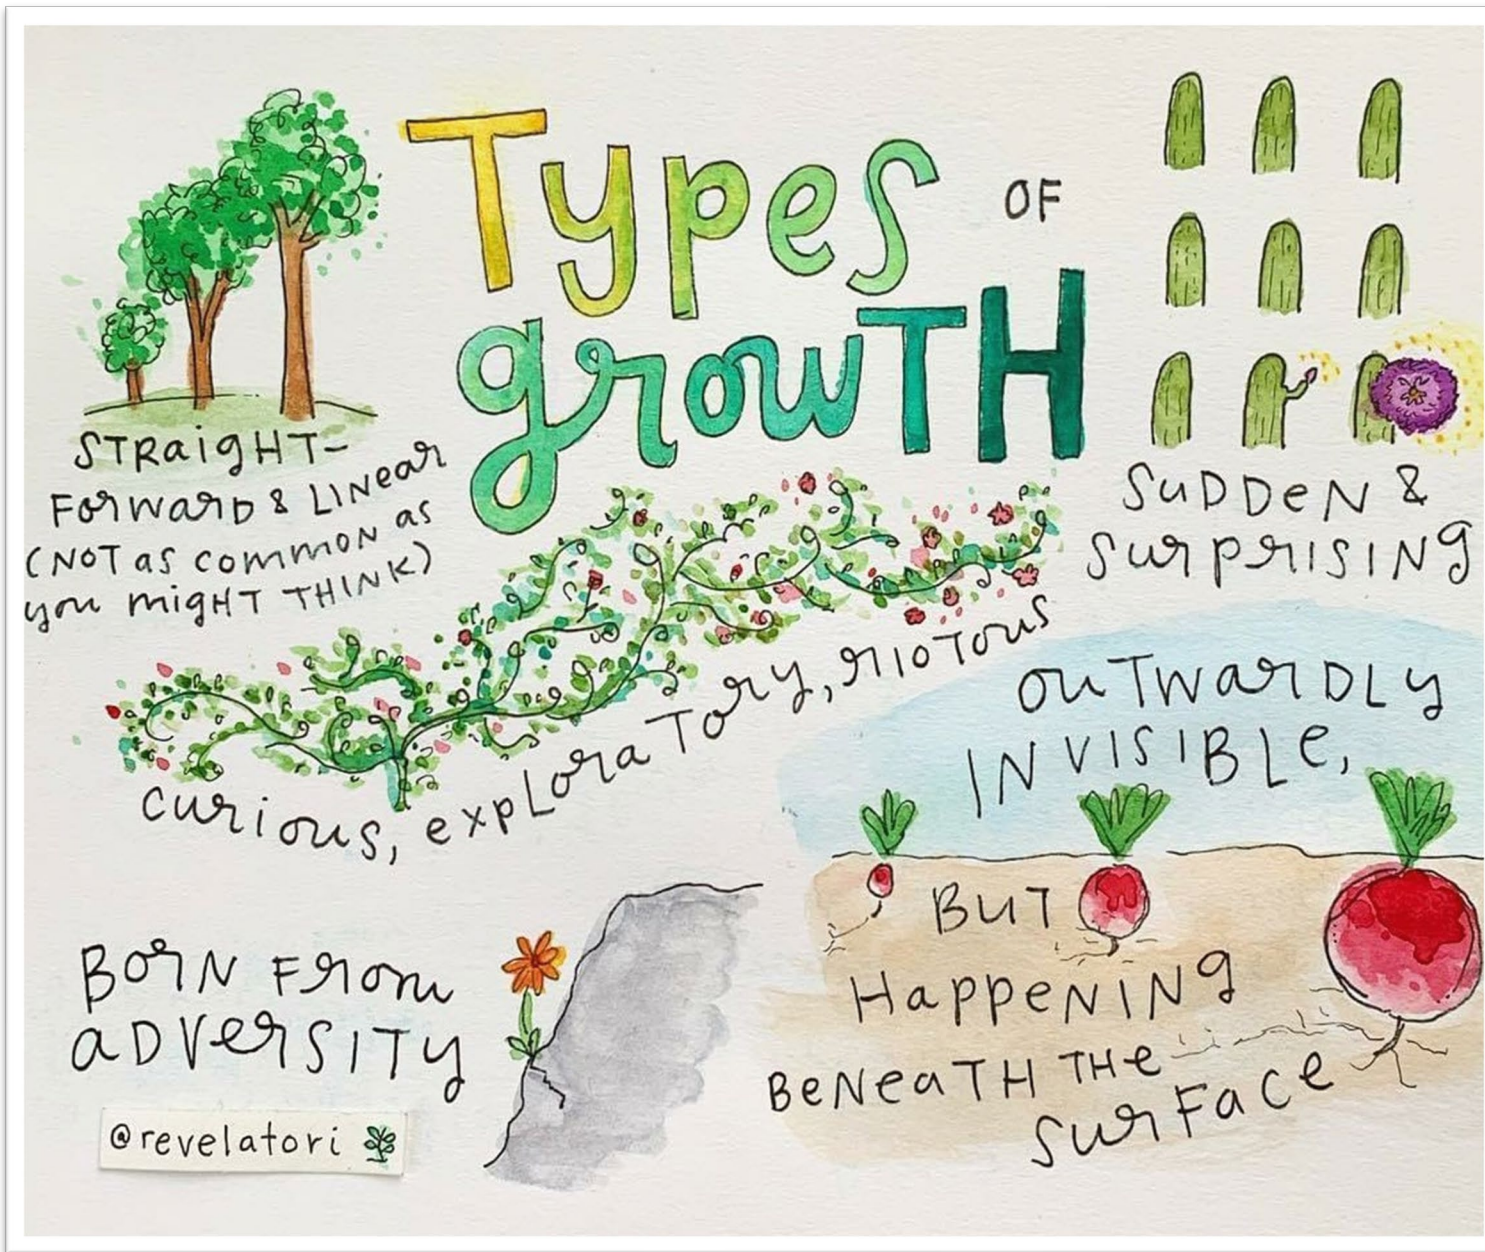 Types OF
growTH
STRaigHT-
FORWARD & LINear
(NOT as common as
you migHT THINK)
SuDDeN &
SurPRISING
curious, exploraTory, RIOTous
ouTwarDLy
INVISIBLe,
BuT
HappeNING
BeNeaTH THe
surFace
BORN FROm
aDVeRSITy
@revelatori